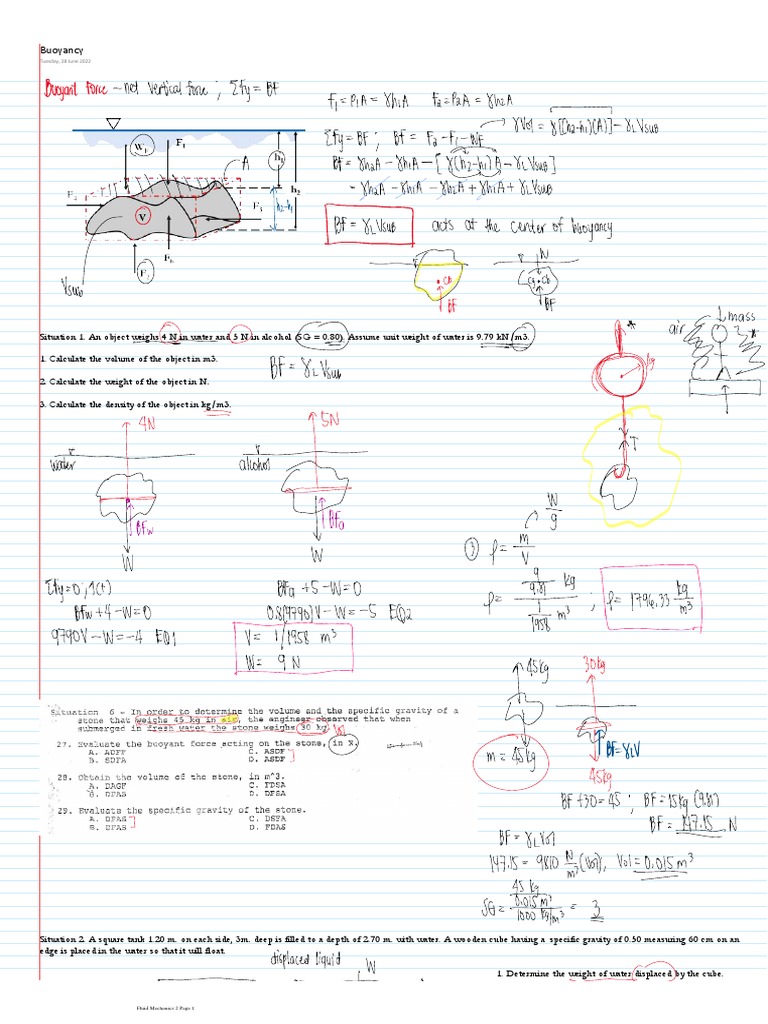 Buoyancy
Tuesday, 28 June 2022
Buoyant Force – net vertical force ; Σfy = BF
F₁ = P₁A = γh₁A F₂ = P₂A = γh₂A
γVol = γ[(h₂-h₁)(A)] - γLVsub
Σfy = BF ; BF = F₂ - F₁ - WF
BF = γh₂A - γh₁A - [γ(h₂-h₁)A - γLVsub]
= γh₂A - γh₁A - γh₂A + γh₁A + γLVsub
BF = γLVsub acts at the center of buoyancy
W₁
F₁
A
h₁
h₂
h₂-h₁
V
F₃
Vsub
CB
BF
W
CG CB
BF
Situation 1. An object weighs 4 N in water and 5 N in alcohol (SG = 0.80). Assume unit weight of water is 9.79 kN/m3.
1. Calculate the volume of the object in m3.
BF = γLVsub
2. Calculate the weight of the object in N.
3. Calculate the density of the object in kg/m3.
mass
air
kg
T
4N
5N
water
alcohol
BFw
BFa
W
W
Σfy = 0 ; ↑(+)
BFw + 4 - W = 0
9790V - W = -4 EQ1
BFa + 5 - W = 0
0.8(9790)V - W = -5 EQ2
V = 1/1958 m³
W = 9 N
W/g
③ ρ = m/V
ρ = (9/9.81 kg)/(1/1958 m³) ; ρ = 1796.33 kg/m³
Situation 6 - In order to determine the volume and the specific gravity of a
stone that weighs 45 kg in air, the engineer observed that when
submerged in fresh water the stone weighs 30 kg.
27. Evaluate the buoyant force acting on the stone, in N.
A. ADFF C. ASDF
B. SDFA D. ASDF
28. Obtain the volume of the stone, in m^3.
A. DAGF C. FDSA
B. DFAS D. DFSA
29. Evaluate the specific gravity of the stone.
A. DFAS C. DSFA
B. DFAS D. FDAS
45kg
30kg
m = 45kg
BF = γLV
45kg
BF + 30 = 45 ; BF = 15kg (9.81)
BF = 147.15 N
BF = γL Vol
147.15 = 9810 N/m³ (Vol), Vol = 0.015 m³
SG = (45 kg/0.015 m³)/(1000 kg/m³) = 3
Situation 2. A square tank 1.20 m. on each side, 3m. deep is filled to a depth of 2.70 m. with water. A wooden cube having a specific gravity of 0.50 measuring 60 cm on an
edge is placed in the water so that it will float.
displaced liquid
W
1. Determine the weight of water displaced by the cube.
Fluid Mechanics 2 Page 1